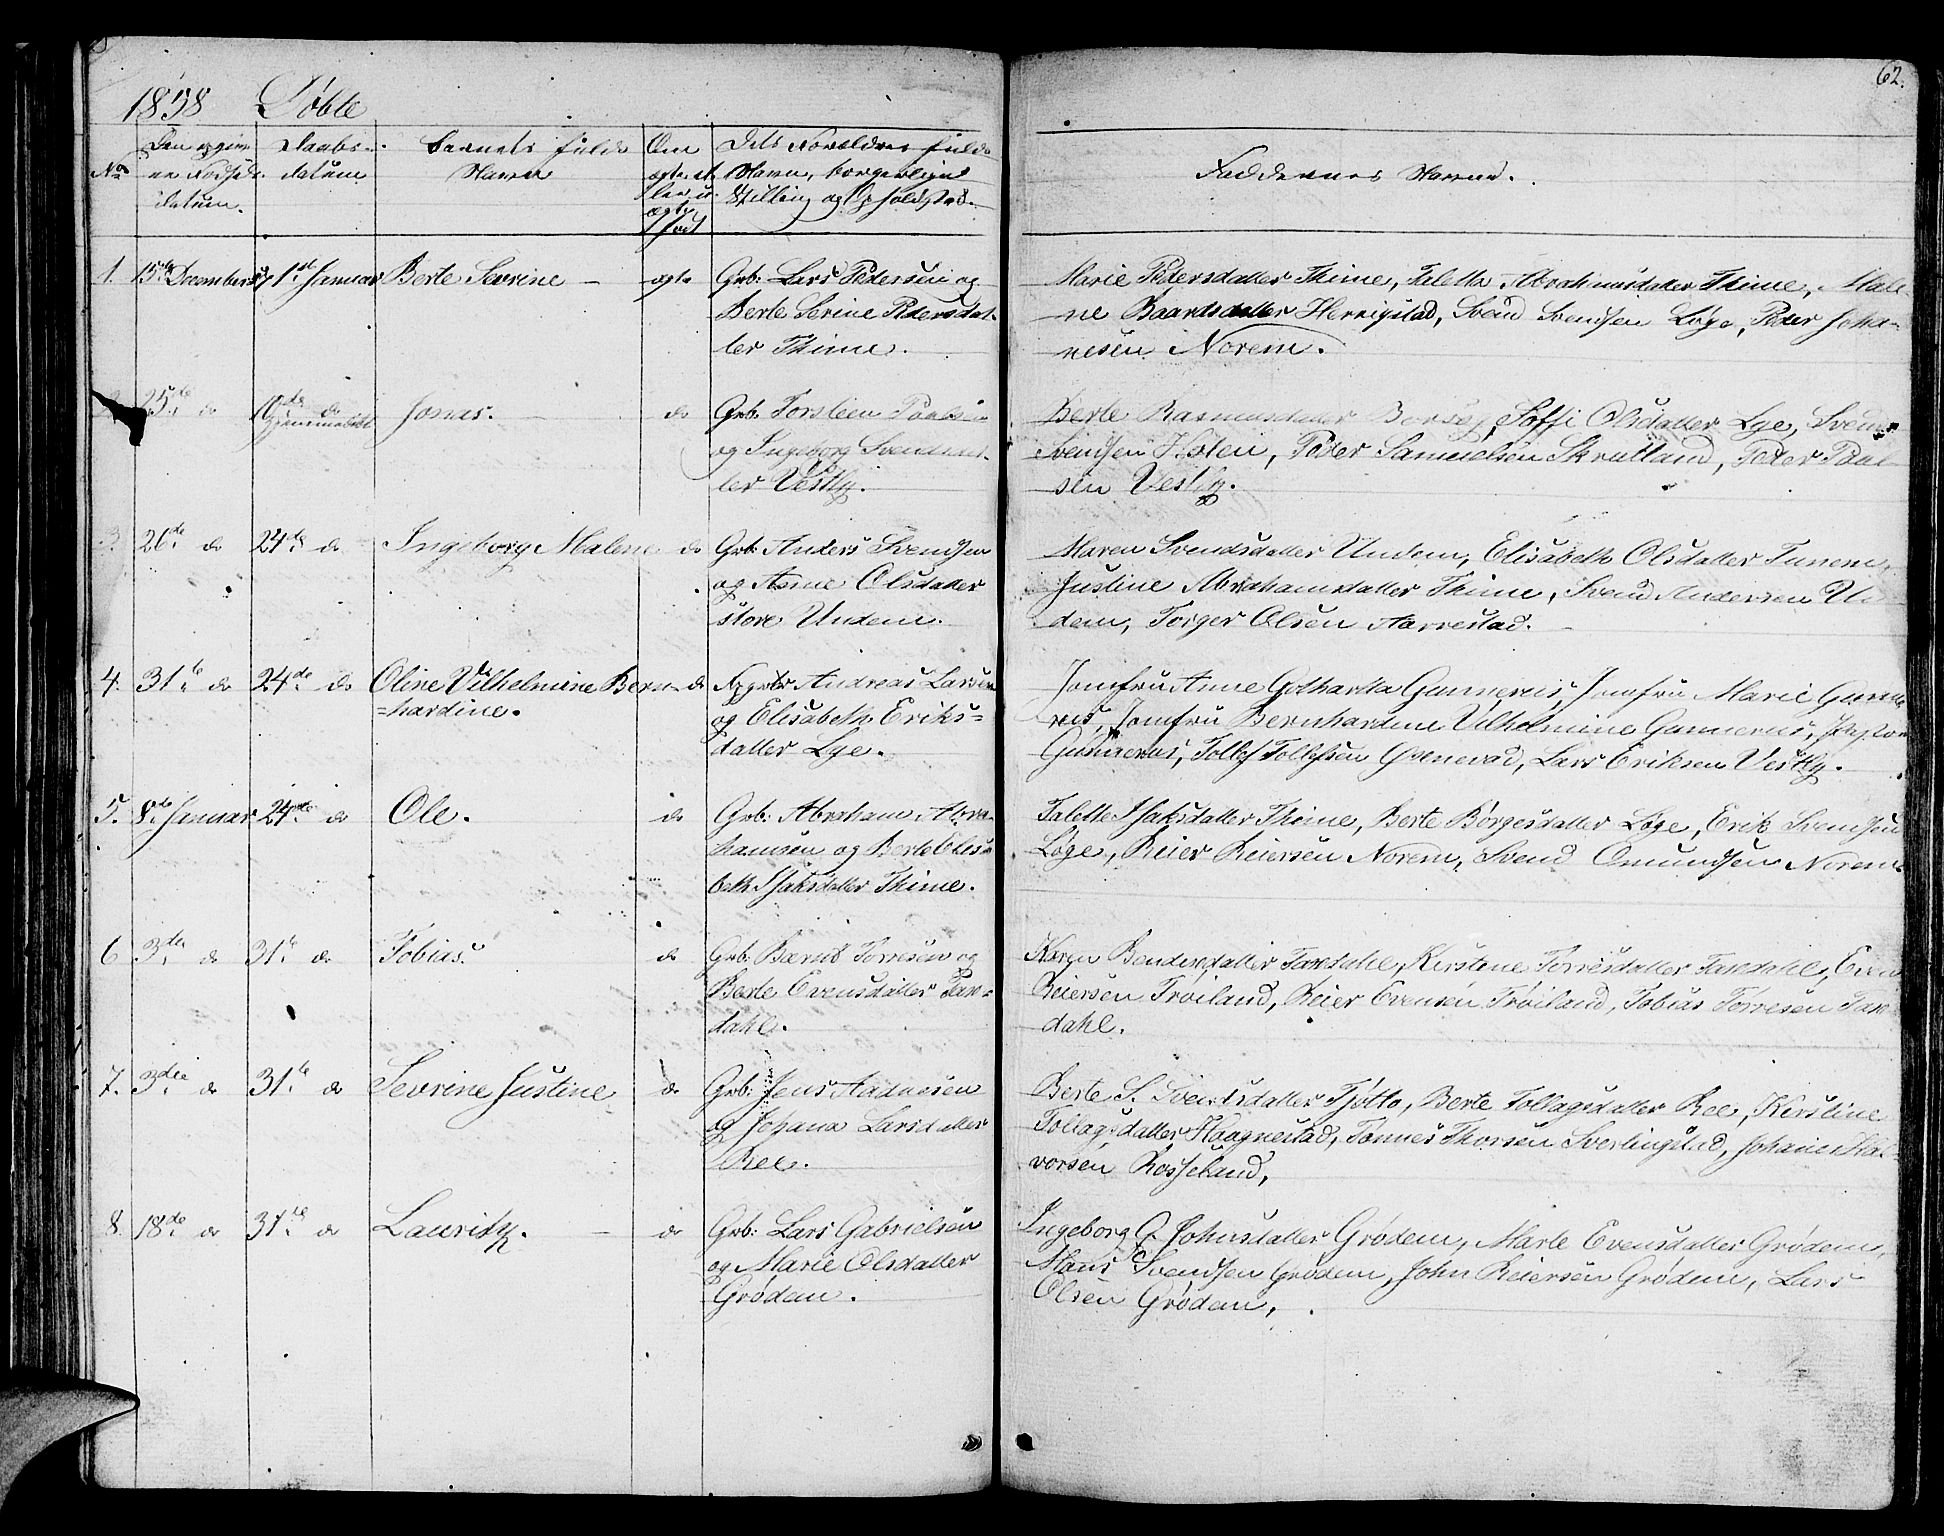 62.
1858 Døbte
No
Den opgivne Fødselsdatum.
Daabsdatum
Barnets fulde Navn
Om ægte eller uægte født
Dets Forældres fulde Navne, borgerlige Stilling og Opholdsted.
Faddernes Navne.
1. 15de December 57 1ste Januar Berte Sevrine – ægte Grb: Lars Pedersen og
Berte Serine Pedersdat-
ter Thime.
Marie Pedersdatter Thime, Taletta Abrahamsdatter Thime, Male-
ne Baardsdatter Herrigstad, Svend Svendsen Løge, Peder Joha-
nesen Norem.
25de do 10de do Jonas. do Grb. Torsteen Paulsen
Hjemmedøbt
og Ingeborg Svendsdat-
ter Vestly.
Berte Rasmusdatter Soffi Olsdatter Lye, Svend
Svendsen Holen, Peder Samuelsen Skrulland, Peder Paul-
sen Vestly.
3. 26de do 24de do Ingeborg Malene do Grb: Anders Svendsen
og Anne Olsdatter
store Undem.
Maren Svendsdatter Undem, Elisabeth Olsdatter Tunem,
Justine Abrahamsdatter Thime, Svend Andersen Un-
dem, Torger Olsen Aarrestad.
4. 31te do 24de do Oline Vilhelmine Bern- do Andreas Larsen
=hardine.
og Elisabeth Eriks=
datter Lye.
Jomfru Anne Gotharda Gunnerus, Jomfru Marie Gunne-
rus, Jomfru Bernhardine Vilhelmine Gunnerus,
Gunnerus, Tollef Tollefsen Grenevad, Lars Eriksen Vestly.
5. 8de Januar 24de do Ole. do Grb: Abraham Abra-
hamsen og Berte Elisa-
beth Isaksdatter Thime.
Talette Isaksdatter Thime, Berte Børgesdatter Løge, Erik Svendsen
Løge, Reier Reiersen Norem, Svend Omundsen Norem.
6 3die do 31te do Tobias. do Grb: Bernt Torresen og
Berte Evensdatter Tax-
dahl.
Karen Bendixdatter Taxdahl, Kirstene Torresdatter Taxdahl, Even
Reiersen Trøiland, Reier Evensen Trøiland, Tobias Torresen Tax-
dahl.
7. 3die do 31te do Sevrine Justine do Grb: Jens Aadnesen
og Johana Larsdatter
Ree.
Berte S. Svendsdatter Tjøtto, Berte Tollagsdatter Ree, Kirstine
Tollagsdatter Haagnestad, Tønnes Thorsen Sverlingstad, Johanes Hal-
vorsen Rosseland,
8. 18de do 31te do Lauritz. – do Grb: Lars Gabrielsen
og Marie Olsdatter
Grødem.
Ingeborg G. Johnsdatter Grødem, Marte Evensdatter Grødem,
Hans Svendsen Grødem, John Reiersen Grødem, Lars
Olsen Grødem,